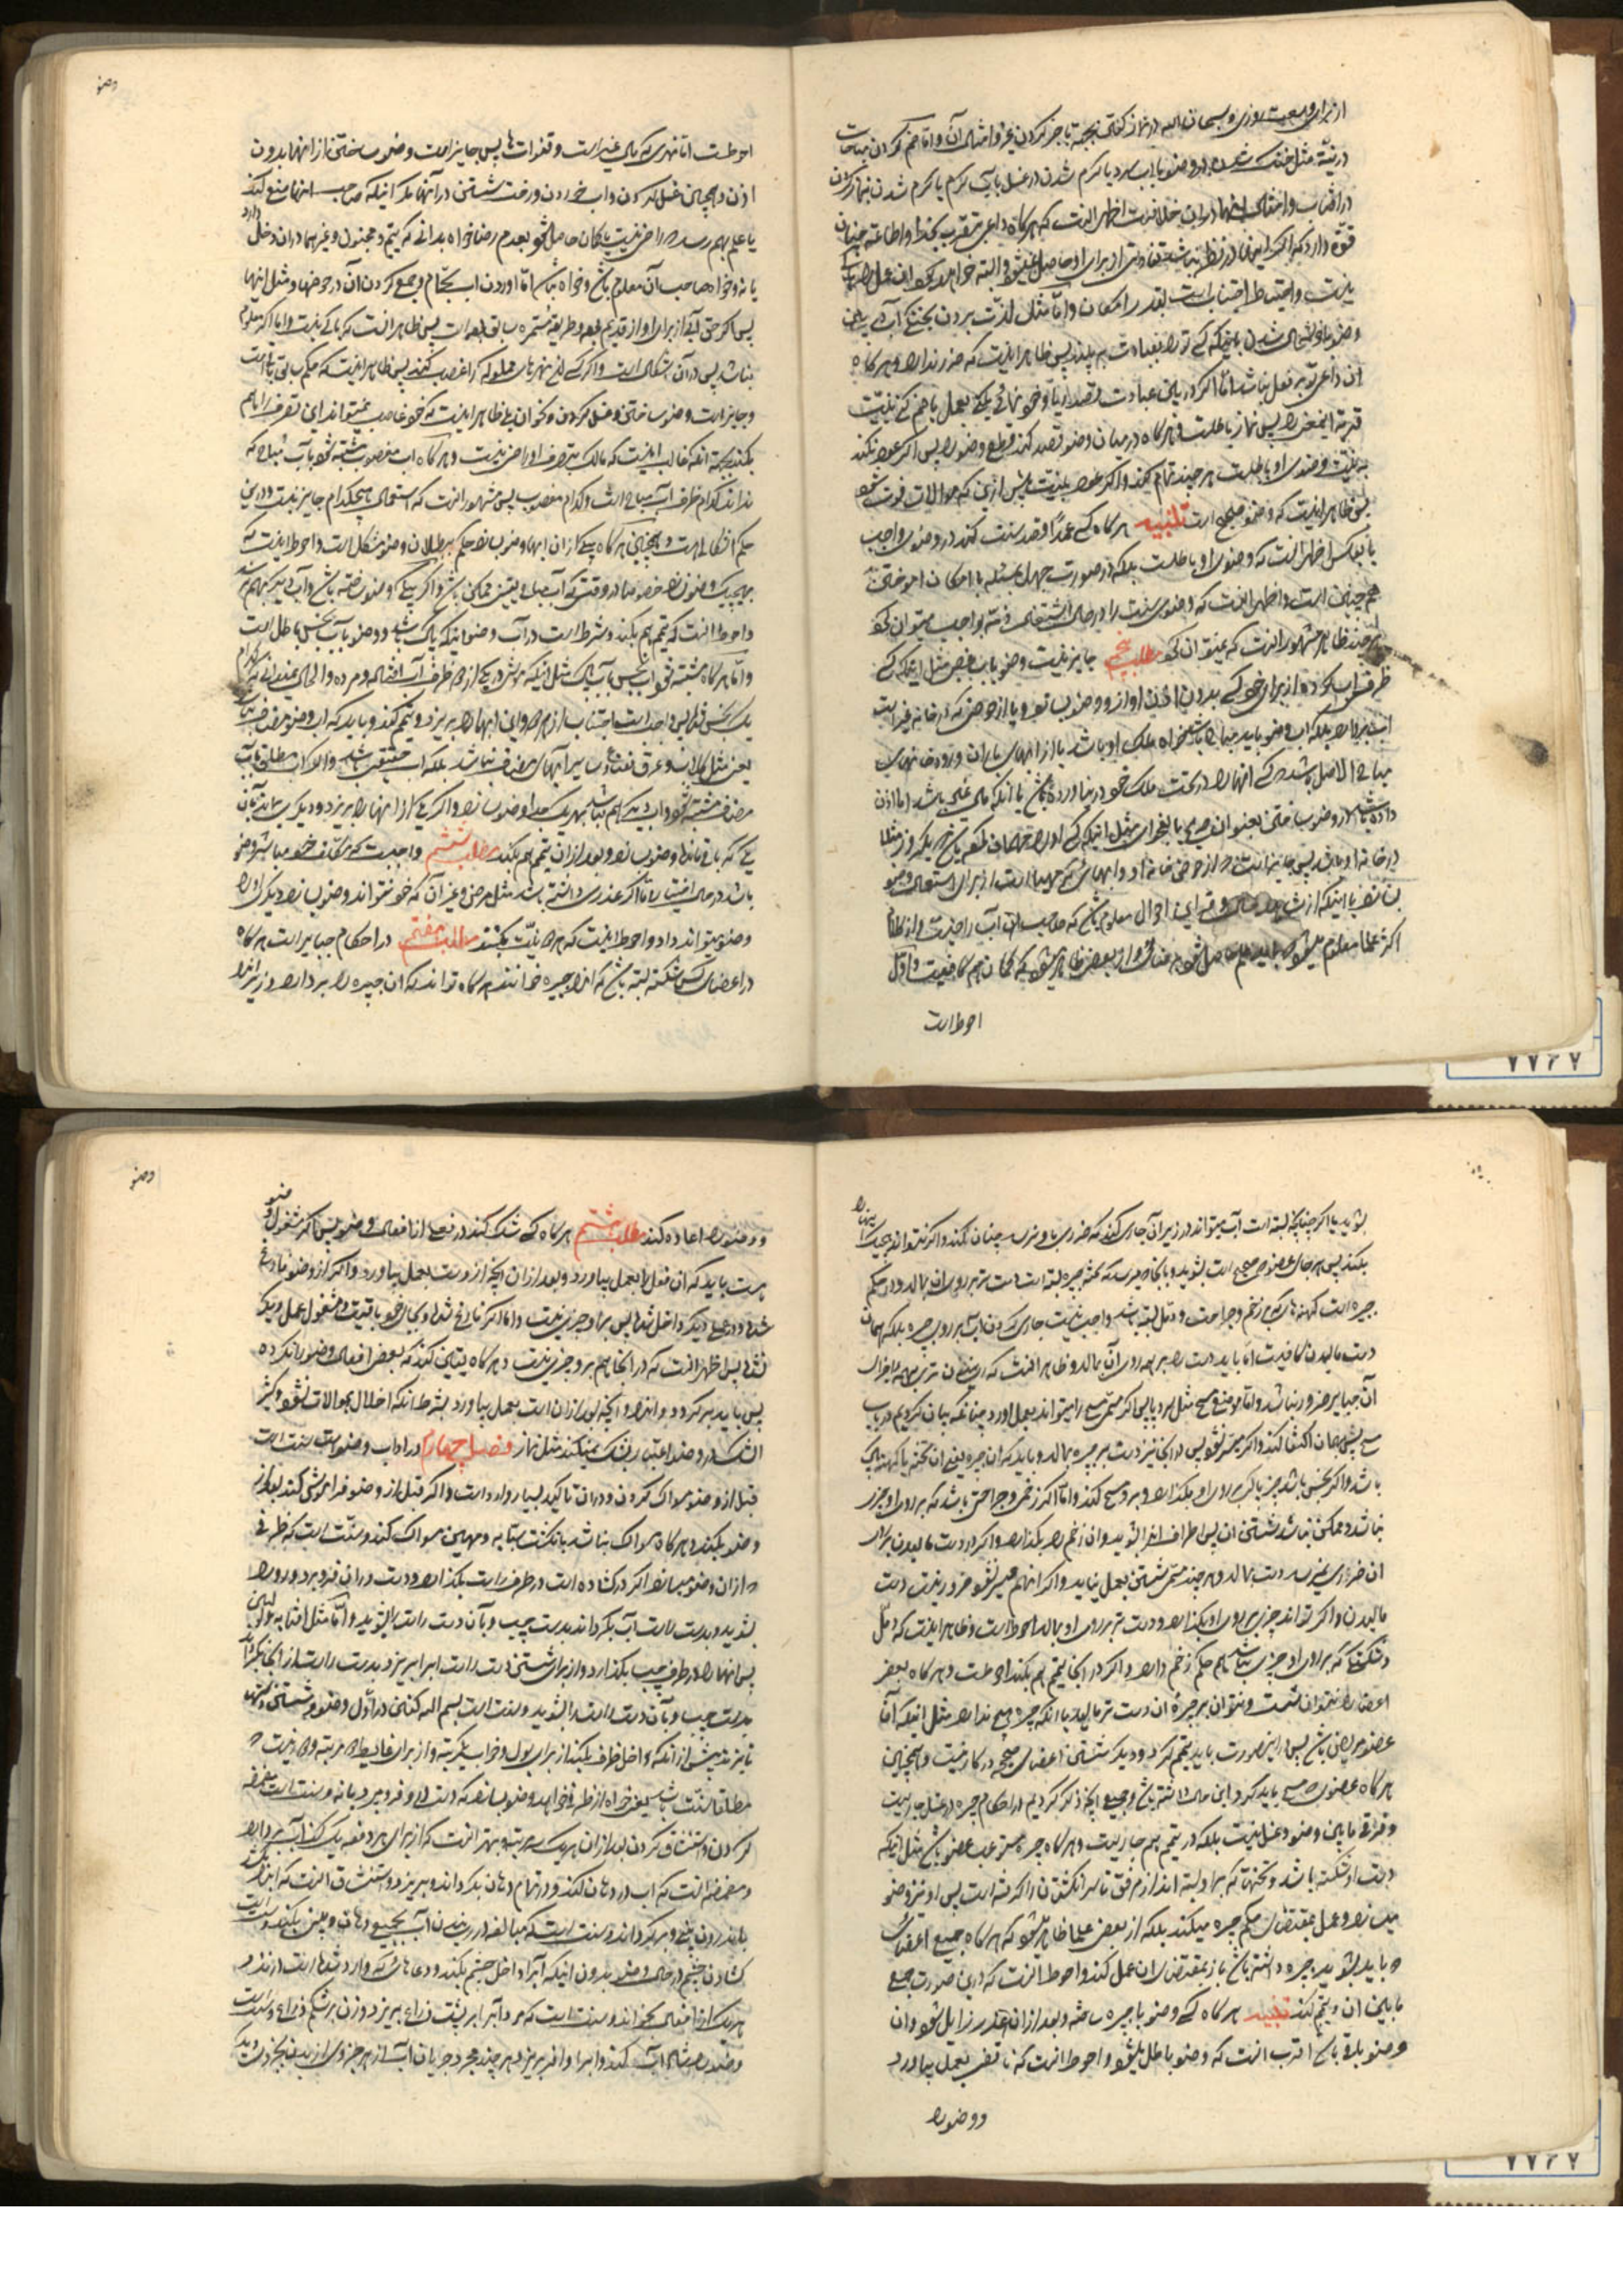 از برای وسعت روزی و سبحان الله در نماز گفتن بجهة باخبر کردن غیر و امثال آن و اما ضم کردن مباحات
در نیّت مثل خنک شدن در وضو بآب سرد یا گرم شدن در غسل بآب گرم یا گرم شدن بنماز کردن
در آفتاب و امثال اینها در آن خلافست اظهر آنست که هرگاه داعی تقرب بخدا و اطاعت چنان
قوّه دارد که اگر اینها در نظر نباشد تفاوتی از برای او حاصل نمیشود و البته خواهد کرد آن عمل را باکی
نیست و احتیاط اجتناب است بقدر امکان و اما مثل لذّت بردن بخنکی آب در
وضو یا خوشحال شدن باینکه کسی او را بعبادت به بیند پس ظاهر اینست که ضرر ندارد و هرگاه
آن داعی قربة بفعل نباشد اما اگر در بین عبادت قصد ریا و خودنمائی بعمل یا ضم کند بنیّت
قربة اینمعنی را پس نماز باطلست و هرگاه در میان وضو قصد کند قطع وضو را پس اگر عود نکند
به نیّت وضوی او باطلست هر چند تمام کند و اگر عود بنیّت پیش از این که موالات فوت شود
پس ظاهر اینست که وضو صحیح است تنبیه هرگاه کسی عمداً قصد سنت کند در وضوی واجب
یا بعکس اظهر آنست که وضوی او باطلست بلکه در صورت جهل بمسئله با امکان آموختن
هم چنین است و اظهر آنست که وضوی سنت را در حال اشتغال ذمّه بواجب میتوان کرد
هر چند ظاهر مشهور آنست که نمیتوان کرد مطلب پنجم جایز نیست وضو بآب غصبی مثل اینکه کسی
ظرفی آب کرده از برای خود کسی بدون اذن او از او وضو بسازد و یا از حوضی که در خانه غیر است
آب بردارد بلکه آب وضو باید مباح باشد خواه ملک او باشد یا از آبهای باران و رودخانهای
مباح الاصل باشد که کسی آنها را در تحت ملک خود در نیاورده باشد یا آنکه مال غیر باشد اما اذن
داده باشد در وضو ساختن بعنوان صریح یا بفحوای مثل اینکه کسی او را مهمان طلبیده باشد که یکروز مثلا
در خانه او باشد پس جایز است از حوض خانه او و آبهائی که مهیا است از برای استعمال وضو
بسازد یا اینکه از شاهد حال و قراین احوال معلوم باشد که صاحب آن آب راضیست و از کلام
اکثر علما معلوم میشود که باید علم حاصل شود بر ضا و از بعضی ظاهر میشود که گمان هم کافیست و اوّل
احوط است
وضو
احوط است اما نهری که مال غیر است و قنوات ها پس جایز است وضو ساختن از آنها بدون
اذن و همچنین غسل کردن و آب خوردن و رخت شستن در آنها مگر اینکه صاحب آنها منع کند
یا علم بهم رسد که راضی نیست یا گمان حاصل شود بعدم رضا خواه بدانی که یتیم و مجنون و غیرهما در آن دخل دارد
یا نه و خواه صاحب آن معلوم باشد و خواه نباشد اما آوردن آب بحمّام و جمع کردن آن در حوضها و مثل اینها
پس اگر حق آبی از برای او از قدیم بوده و طریقه مستمره سابق بوده است پس ظاهر آنست که باکی نیست و اما اگر معلوم
نباشد پس در آن اشکال است و اگر کسی نهرهای مملوکه را غصب کند پس ظاهر اینست که حکم سابق باقی است
و جایز است وضو ساختن و غسل کردن و خوردن بلی ظاهر اینست که خود غاصب نمیتواند این تصرف را هم
بکند بجهة آنکه غالب اینست که مالک بتصرف او راضی نیست و هرگاه آب مغصوب مشتبه شود بآب مباح که
نداند کدام ظرف آب مباح است و کدام مغصوب پس مشهور آنست که استعمال هیچکدام جایز نیست و در این
حکم اشکال است و همچنین هرگاه بیکی از آن آبها وضو بسازد حکم ببطلان وضو مشکل است و احوط اینست که
بهیچیک وضو نسازد خصوصا در وقتی که آب مباح یقینی ممکن باشد و اگر بیکی وضو ساخته باشد و آب دیگر بهم نرسد
و احوط آنست که تیمم هم بکند و شرط است در آب وضو اینکه پاک باشد و وضو بآب نجس باطل است
و اما هرگاه مشتبه شود آب نجس بآب پاک مثل اینکه موش در یکی از دو ظرف آب افتاد و مرده و الحال نمیدانی که کدام
یک نجس شده پس واجب است اجتناب از هر دو و این آبها را بریزد و تیمم کند و باید که آب وضو مضاف نباشد
یعنی مثل گلاب و عرق نعناع و سایر آبهای مضاف نباشد بلکه آب حقیقی باشد و الا آب مطلق بآب
مضاف مشتبه شود و آب دیگر هم نباشد بهر یک جدا وضو بسازد و اگر یکی از آنها را بریزد و دیگری بماند بآن
یکی که باقیمانده وضو بسازد و بعد از آن تیمم هم بکند مطلب ششم واجبست که مکلف خود مباشر وضو
باشد در حال اختیار و اما اگر عذری داشته باشد مثل مرض و غیر آن که خود نتواند وضو بسازد دیگری او را
وضو میتواند داد و احوط اینست که هر دو نیّت بکنند مطلب هفتم در احکام جبایر است هرگاه
در اعضای کسی شکسته بسته باشد که آنرا جبیره خوانند هرگاه تواند که آن جبیره را بردارد و زیر آنرا
بشوید یا اگر چنانچه بسته است آب میتواند در زیر آن جاری کند که ضرری باو نرسد چنان کند و اگر نتواند هیچیک اینها را
بکند پس هر جای عضو که صحیح است بشوید و بآنجا که میرسد که تخته جبیره بسته است دست تر بر روی آن بمالد و در حکم
جبیره است کهنه های که بر زخم و جراحت و دمل بسته باشد و واجب نیست جاری کردن آب بر روی جبیره بلکه همان
دست مالیدن کافیست اما باید دست را بر همه روی آن بمالد و ظاهر آنست که رسیدن تری بهمه اجزای
آن جبایر ضرور نباشد و اما موضع مسح مثل سر و پا پس اگر مسح میسر شود بعمل آورد چنانکه بیان کردیم در باب
مسح پیش همان اکتفا کند و اگر میسّر نشود پس در آنجا نیز دست بر جبیره بمالد و باید که آن جبیره یعنی آن تخته یا کهنه پاک
باشد و اگر نجس باشد چیز پاک بر روی او بگذارد و بر او مسح کند و اما اگر زخمی و جراحتی باشد که بر روی او چیزی
نباشد و ممکن نباشد شستن آن پس اطراف آنرا بشوید و آن زخم را بگذارد و اگر از دست مالیدن بر
آن ضرری نمیرسد دست بمالد و هر چند مسمّی شستن بعمل نیاید و اگر آنهم میسر نشود ضرور نیست دست
مالیدن و اگر تواند چیزی بر روی او بگذارد و دست تر بر روی او بمالد احوط است و ظاهر اینست که دمل
و شکستگی که بر روی او چیزی نباشد هم حکم زخم دارد و اگر در اینجا تیمم هم بکند احوط است و هرگاه بعضی
اعضا را نتوان شست و نتوان بر جبیره آن دست تر مالید یا آنکه جبیره هیچ ندارد مثل اینکه آن
عضو مریض باشد پس در اینصورت باید تیمم کرد و دیگر شستن اعضای صحیحه در کار نیست و همچنین
هرگاه عضوی که مسح باید کرد این حال داشته باشد و جمیع آنچه ذکر کردیم از احکام جبیره در غسل جاریست
و فرقی ما بین وضو و غسل نیست بلکه در تیمم هم جاریست و هرگاه جبیره مستوعب عضو باشد مثل اینکه
دست او شکسته باشد و تختها که بر او بسته اند از مرفق تا سر انگشتان را گرفته است پس او نیز وضو
میسازد و عمل بمقتضای حکم جبیره میکند بلکه از بعض علما ظاهر میشود که هرگاه جمیع اعضای
که باید بشوید جبیره داشته باشد باز بمقتضای آن عمل کند و احوط آنست که در این صورت جمع
ما بین آن و تیمم کند تنبیه هرگاه کسی وضو با جبیره ساخته و بعد از آن عذر زایل شود و آن
وضو باقی باشد اقرب آنست که وضو باطل نمیشود و احوط آنست که ناقضی بعمل بیاورد
و وضو را
وضو
و وضو را اعاده کند مطلب هشتم هرگاه کسی شک کند در فعلی از افعال وضو پس اگر مشغول وضو
هست باید که آن فعل را بعمل بیاورد و بعد از آن آنچه از اوست بعمل بیاورد و اگر از وضو فارغ
شده و در عملی دیگر داخل شده پس بر او چیزی نیست و اما اگر فارغ شده و بجای خود باقیست و مشغول عمل دیگر
نشده پس اظهر آنست که در آنجا هم بر او چیزی نیست و هرگاه یقین کند که بعض افعال وضو را نکرده
پس باید برگردد و آنرا و آنچه بعد از آن است بعمل بیاورد بشرط آنکه اخلال بموالات نشود و کثیر
الشک در وضو اعتبار بشک نمیکند مثل نماز فصل چهارم در آداب وضو است سنت است
قبل از وضو مسواک کردن و در آن تاکید بسیار وارد است و اگر قبل از وضو فراموش کند بعد از
وضو بکند و هرگاه مسواک نباشد بانگشت سبابه و مهین مسواک کند و سنّت است که ظرفی
که از آن وضو میسازد اگر درگشاده است در طرف راست بگذارد و دست در آن فرو برد و رو را
بشوید و بدست راست آب بگرداند بدست چپ و بآن دست راست را بشوید و اما مثل آفتابه
پس آنها را در طرف چپ بگذارد و از برای شستن دست راست آب را بریزد بدست راست از آنجا بگرداند
بدست چپ و بآن دست راست را بشوید و سنت است بسم الله گفتن در اوّل وضو و شستن دستها
تا بزند پیش از آنکه داخل ظرف بکند از برای بول و خواب یکمرتبه و از برای غایط دو مرتبه و
مطلقا سنّت باشد یعنی خواه از ظرفی خواهد وضو بسازد که دست در او فرو میبرد یا نه و سنت است مضمضه
کردن و استنشاق کردن بعد از آن هر یک سه مرتبه و بهتر آنست که از برای هر دفعه یک کف آب بردارد
و مضمضه آنست که آب در دهان کند و در تمام دهان بگرداند و بریزد و استنشاق آنست که آنرا
باندرون بینی برگرداند و سنت است که مبالغه در رسانیدن آب بجمیع دهان و بینی بکند و سنت است
گشادن چشم در حال وضو بدون اینکه آبرا داخل چشم بکند و دعاهائی که وارد شده است از نزد
هر یک از افعال بخواند و سنت است که مرد آبرا بر پشت ذراع بریزد و زن بر شکم ذراع و سنت است
وضو را بمد آب کند و آب را وافر بریزد هر چند مجرد جریان آب از هر جزوی از بدن بجزو دیگر